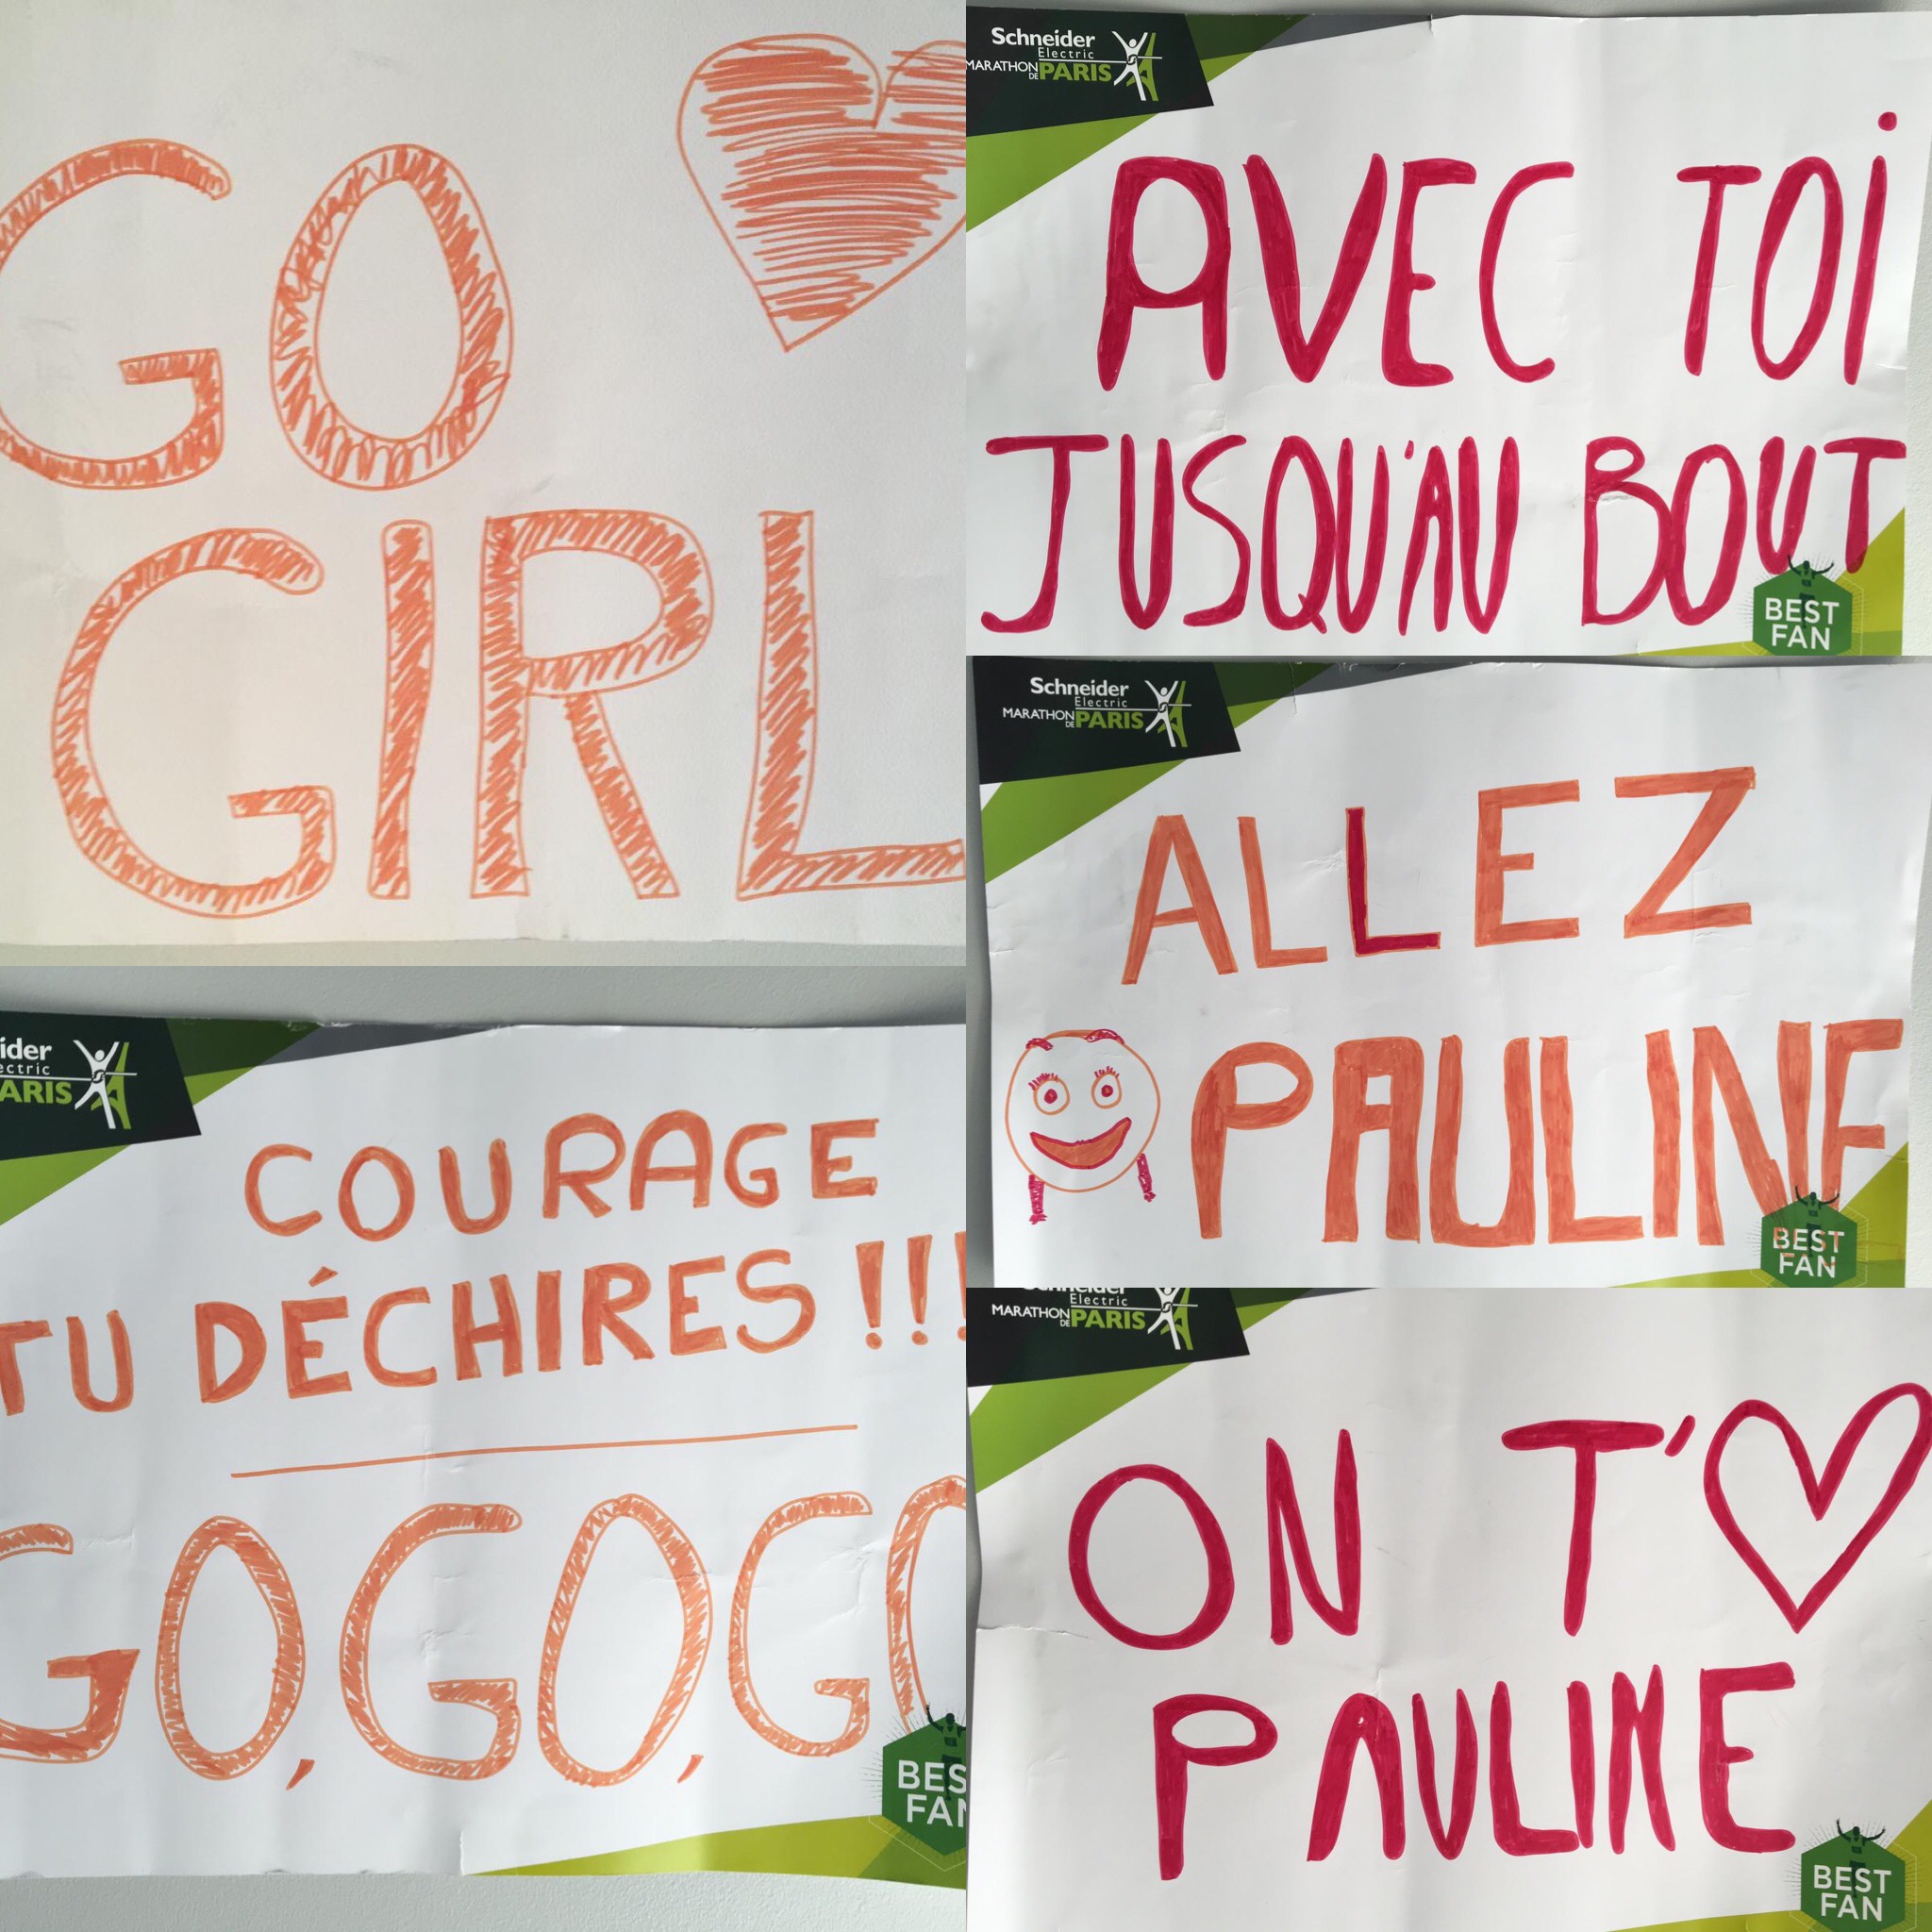 GO
GIRL
Schneider
Electric
MARATHON
DE PARIS
AVEC TOI
JUSQU'AU BOUT
BEST
FAN
Schneider
Electric
MARATHON
DE PARIS
ALLEZ
PAULINE
BEST
FAN
ider
ectric
ARIS
COURAGE
TU DÉCHIRES !!!
GO, GO, GO
BES
FAN
Schneider
Electric
MARATHON
DE PARIS
ON T'♡
PAULINE
BEST
FAN